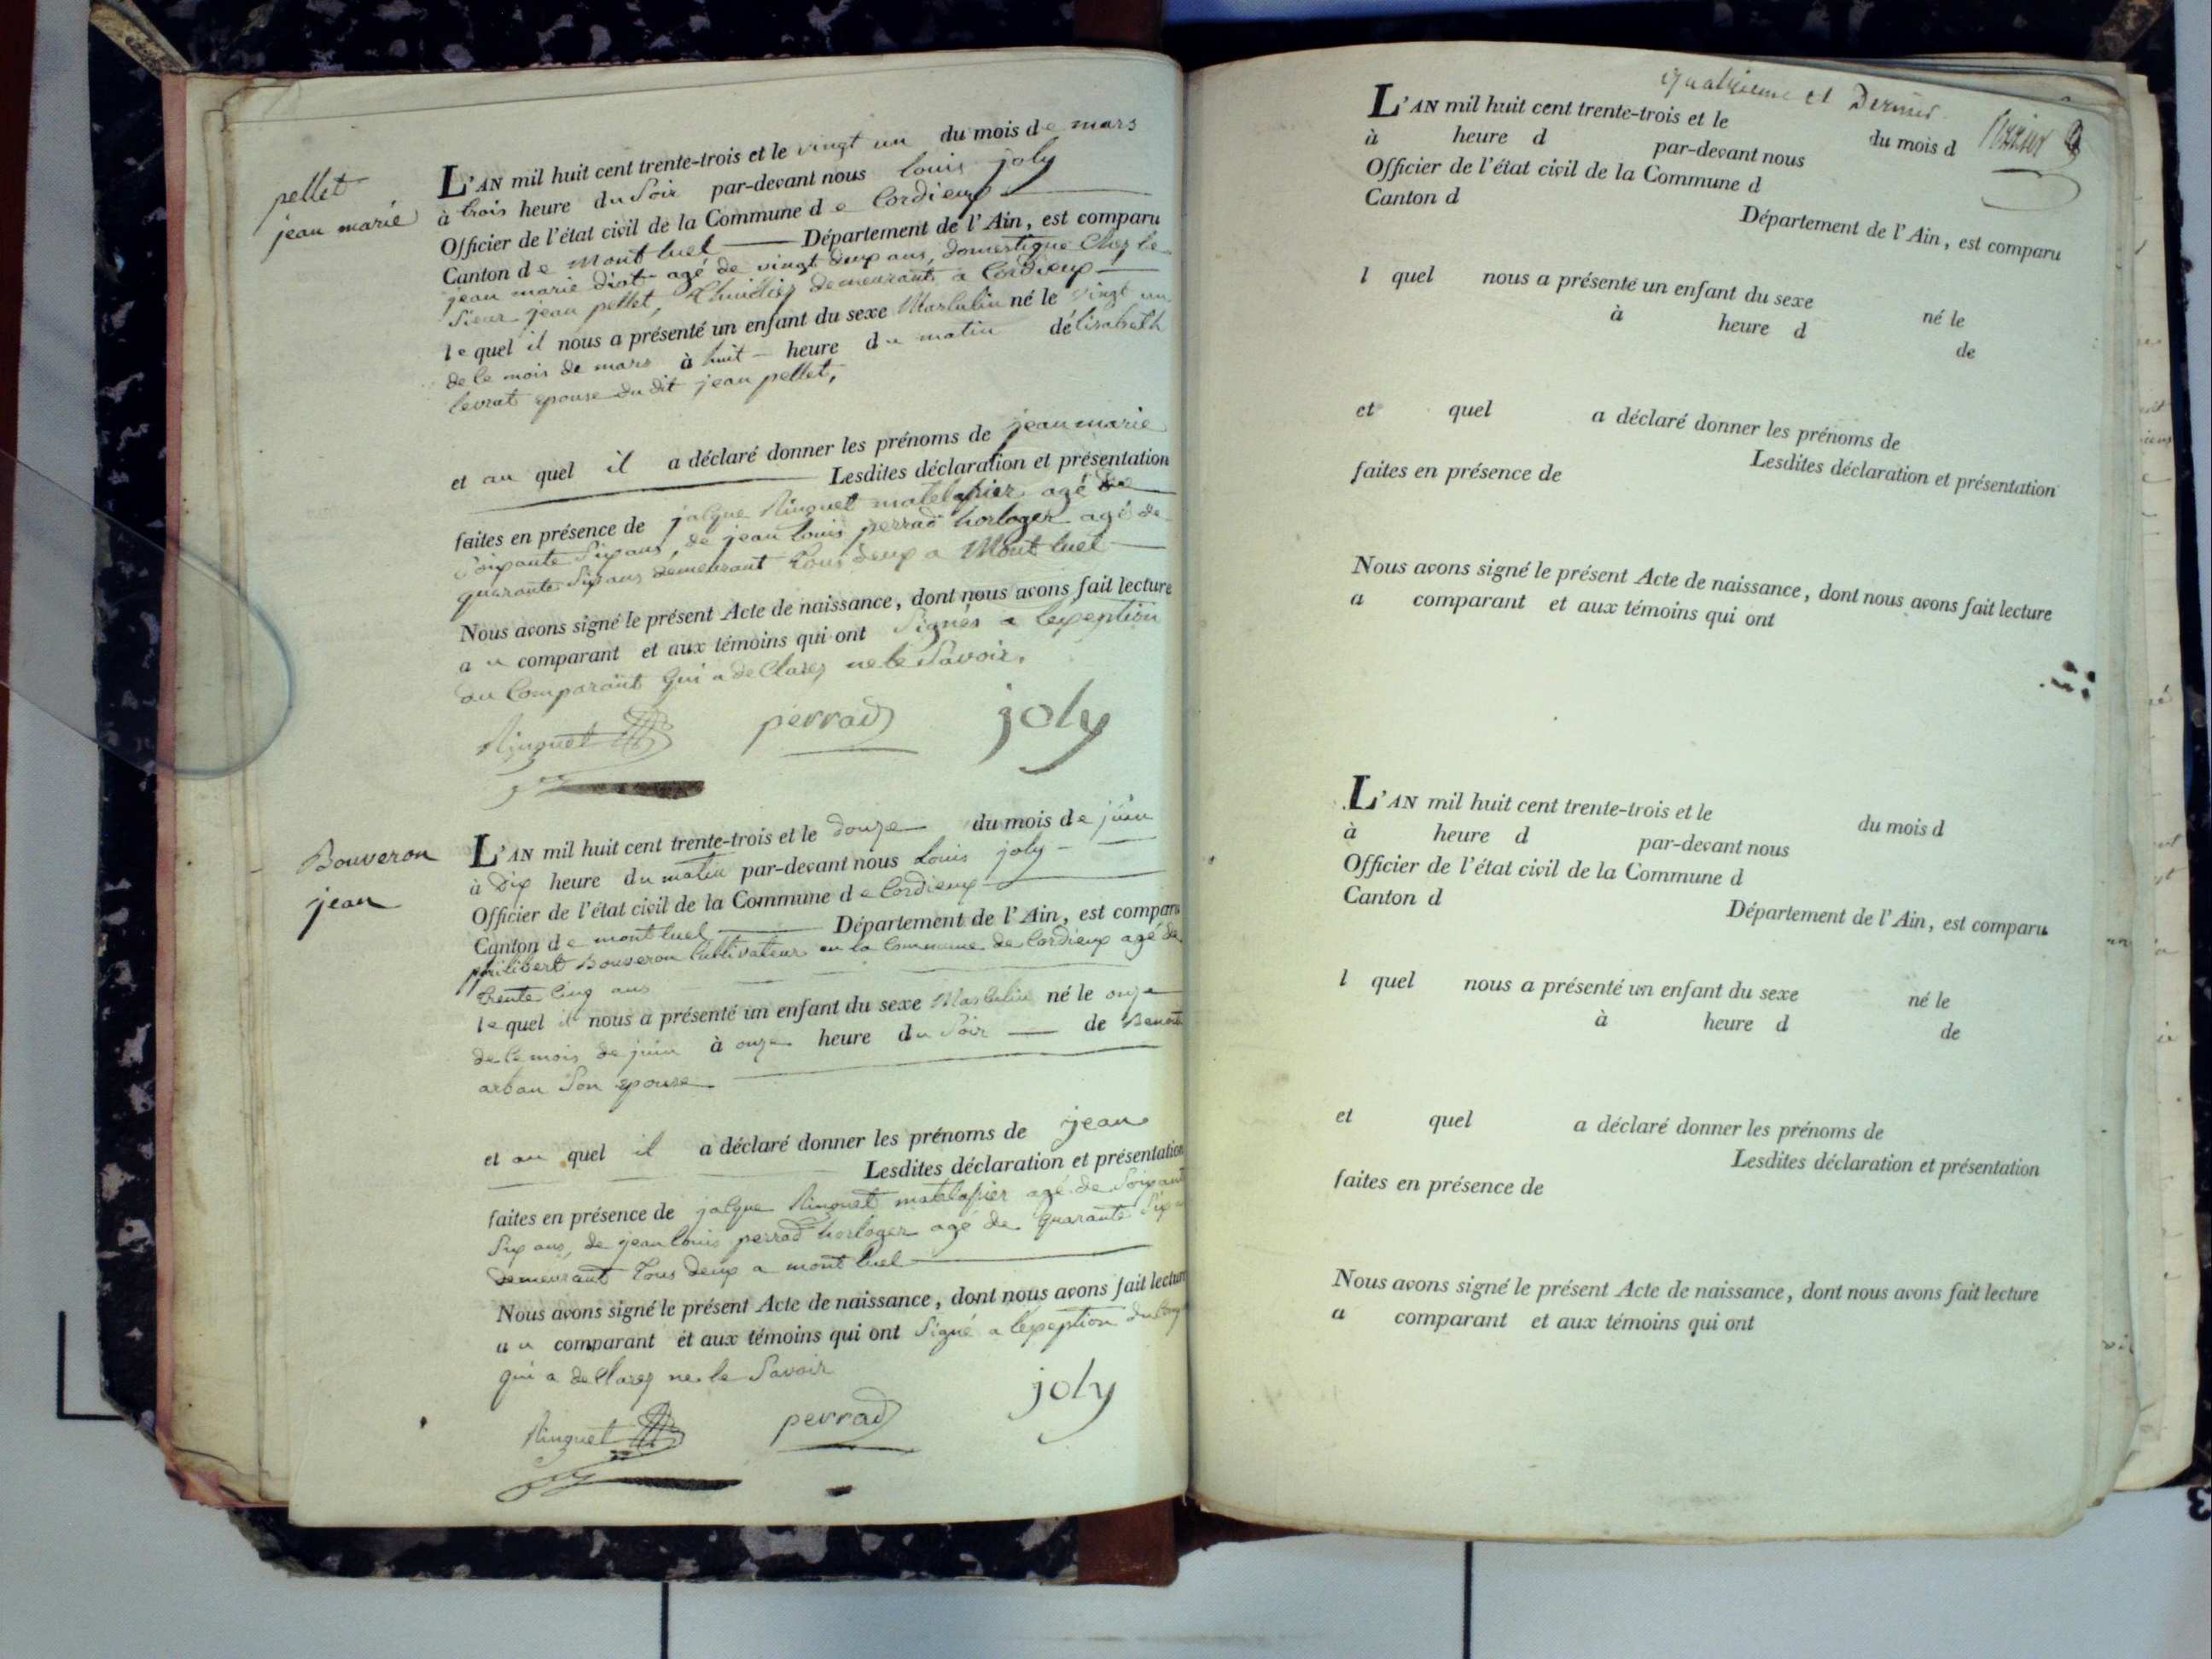 pellet
jean marie
L'AN mil huit cent trente-trois et le vingt un du mois de mars
à trois heure du Soir par-devant nous louis joly
Officier de l'état civil de la Commune de Cordieux
Canton de Mont luel Département de l'Ain, est comparu
jean marie diot agé de vingt deux ans, domestique Chez le
Sieur jean pellet, demeurant a Cordieux
le quel il nous a présenté un enfant du sexe Masculin né le vingt un
de le mois de mars à huit heure du matin délisabeth
levrat epouse du dit jean pellet,
et au quel il a déclaré donner les prénoms de jean marie
Lesdites déclaration et présentation
faites en présence de jacque Ringuet matelassier agé de
Soixante Six ans, de jean louis perrad horloger agé de
quarante Six ans demeurant tous deux a Mont luel
Nous avons signé le présent Acte de naissance, dont nous avons fait lecture
a u comparant et aux témoins qui ont Signés a lexeption
du Comparant Qui a de Clarez ne le Savoir.
Ringuet perrad joly
Bouveron
jean
L'AN mil huit cent trente-trois et le douze du mois de juin
à Dix heure du matin par-devant nous Louis joly
Officier de l'état civil de la Commune de Cordieux
Canton de mont luel Département de l'Ain, est comparu
philibert Bouveron Cultivateur en la Commune de Cordieux agé de
trente Cinq ans
le quel il nous a présenté un enfant du sexe Masculin né le onze
de le mois de juin à onze heure du Soir de Benoite
arban Son epouse
et au quel il a déclaré donner les prénoms de jean
Lesdites déclaration et présentation
faites en présence de jacque Ringuet matelassier agé de Soixante
Six ans, de jean louis perrad horloger agé de Quarante Six
demeurant tous deux a mont luel
Nous avons signé le présent Acte de naissance, dont nous avons fait lecture
a u comparant et aux témoins qui ont Signé a lexeption du Comp
qui a de Clarez ne le Savoir
Ringuet perrad joly
quatrieme et Dernier
L'AN mil huit cent trente-trois et le du mois d
à heure d par-devant nous
Officier de l'état civil de la Commune d
Canton d Département de l'Ain, est comparu
l quel nous a présenté un enfant du sexe né le
à heure d de
et quel a déclaré donner les prénoms de
Lesdites déclaration et présentation
faites en présence de
Nous avons signé le présent Acte de naissance, dont nous avons fait lecture
a comparant et aux témoins qui ont
L'AN mil huit cent trente-trois et le du mois d
à heure d par-devant nous
Officier de l'état civil de la Commune d
Canton d Département de l'Ain, est comparu
l quel nous a présenté un enfant du sexe né le
à heure d de
et quel a déclaré donner les prénoms de
Lesdites déclaration et présentation
faites en présence de
Nous avons signé le présent Acte de naissance, dont nous avons fait lecture
a comparant et aux témoins qui ont